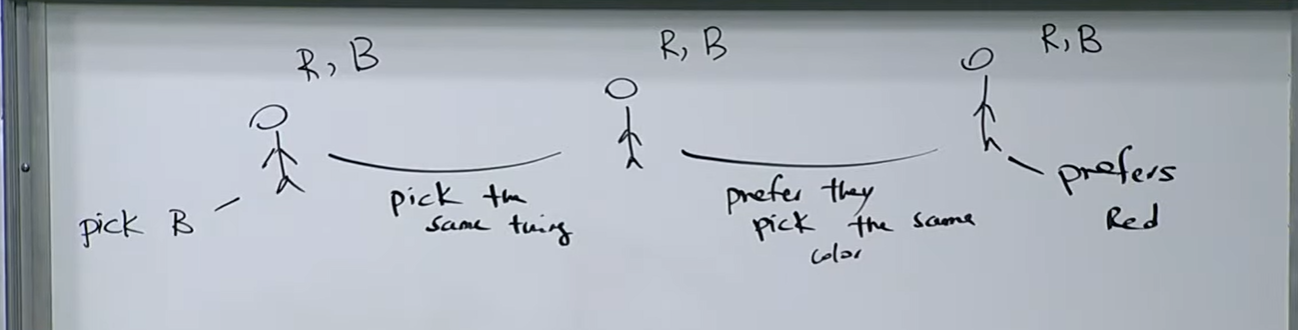 R, B
R, B
R, B
pick B
pick the
same thing
prefer they
pick the same
color
prefers
Red